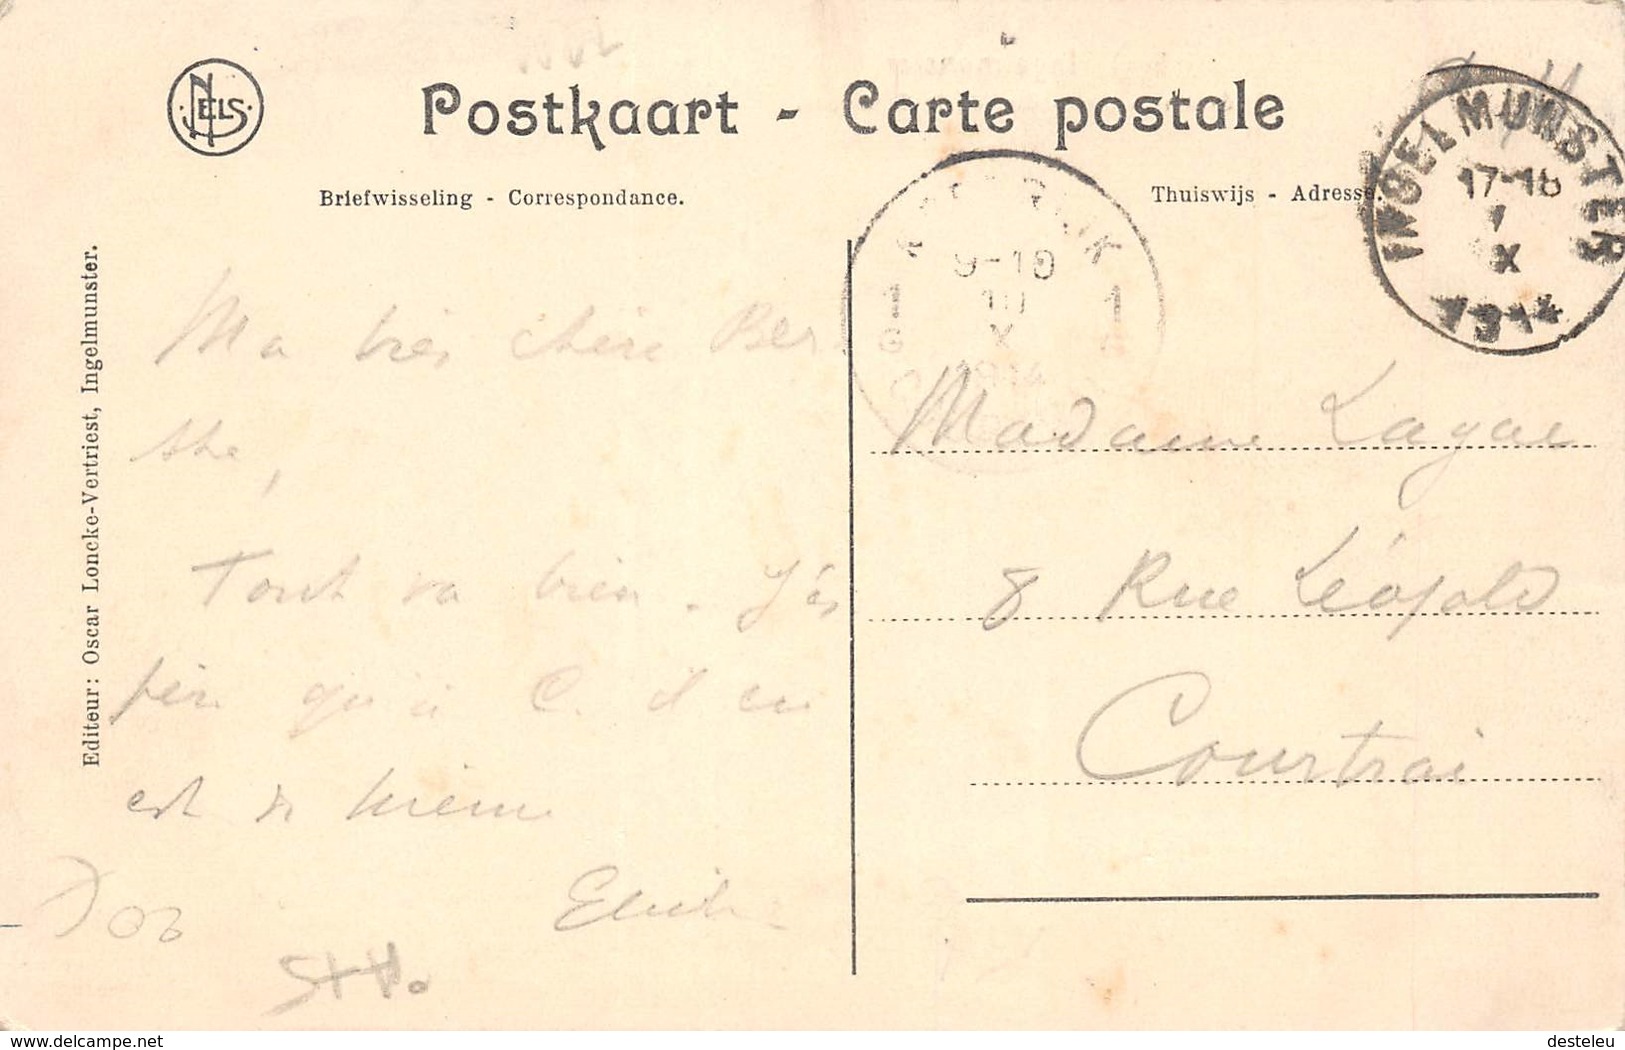 NELS
Postkaart - Carte postale
Briefwisseling - Correspondance.
Thuiswijs - Adresse.
INGELMUNSTER
17-18
X
9-10
10
X
1914
1 1
Editeur: Oscar Loncke-Vertriest, Ingelmunster.
Ma très chère Ber
the,
Tout va bien. J'es
père qu'à C. il en
est de même
Madame Lagae
8 Rue Léopold
Courtrai
delcampe.net
desteleu